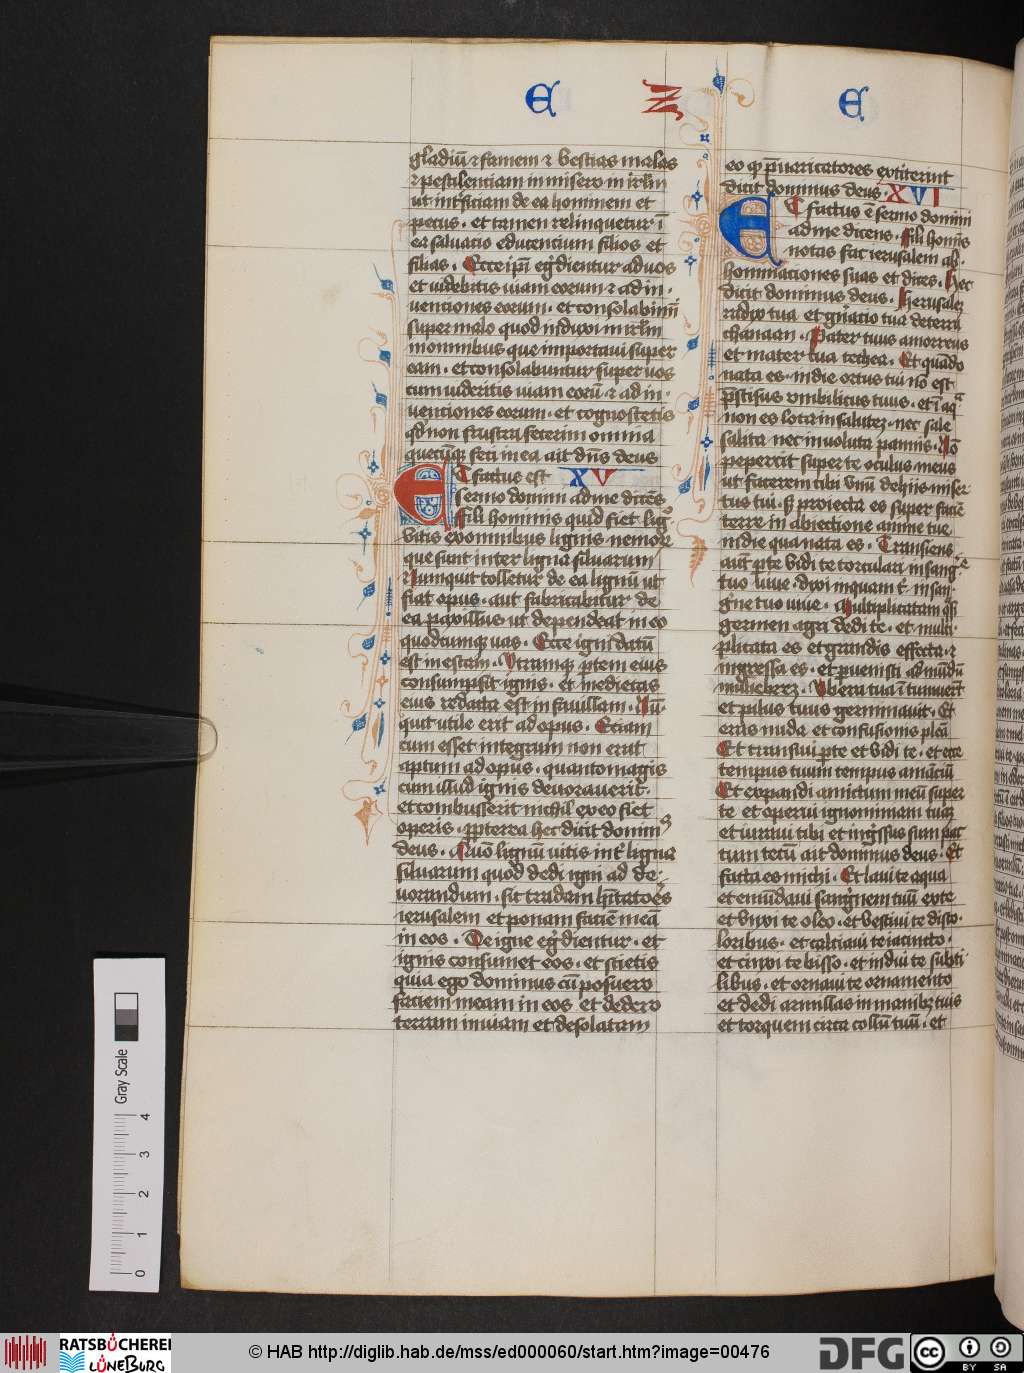 E Z E
gladiū ⁊ famem ⁊ bestias malas
⁊ pestilenciam inmisero in irl̄m
ut int̄ficiam de ea hominem et
pecus . et tamen relinquetur ī
ea saluatio educencium filios et
filias . Ecce ip̄i eḡdientur ad uos
et uidebitis uiam eorum ⁊ ad in-
uenciones eorum . et consolabimī
super malo quod induxi in irl̄m
in omnibus que importaui super
eam . et consolabuntur super uos
cum uideritis uiam eorū ⁊ ad in-
uenciones eorum . et cognoscetis
qd̄ non frustra fecerim omnia
quecūq̨ feci in ea ait dn̄s deus
ET factus est XV
sermo domini ad me dicēs
Fili hominis quid fiet lig°
vitis ex omnibus lignis nemorꝝ
que sunt inter ligna siluarum
Nunquit tolletur de ea lignū ut
fiat opus . aut fabricabitur de
ea paxillus ut dependeat in eo
quodcumq̨ uas . Ecce igni datū
est in escam . Utramq̨ ꝑtem eius
consumpsit ignis . et medietas
eius redacta est in fauillam . Nū-
quit utile erit ad opus . Eciam
cum esset integrum non erat
aptum ad opus . quanto magis
cum illud ignis deuorauerit .
et combusserit nichil ex eo fiet
operis . ꝓpterea hec dicit domin9
deus . Quō lignū uitis int̄ ligna
siluarum quod dedi igni ad de-
uorandum . sic tradam h̄itatores
ierusalem et ponam faciē meā
in eos . De igne eḡdientur . et
ignis consumet eos . et scietis
quia ego dominus cū posuero
faciem meam in eos et dedero
terram inuiam et desolatam
eo qꝫ p̄uaricatores extiterunt
dicit dominus deus . XVI
ET factus ē sermo domini
ad me dicens . Fili homīs
notas fac ierusalem ab-
hominaciones suas et dices . Hec
dicit dominus deus . Iherusalem
radix tua et gn̄acio tua de terra
chanaan . Pater tuus amorreus
et mater tua cethea . Et quādo
nata es . in die ortus tui nō est
p̄scisus umbilicus tuus . et ī aq̄
non es lota in salutē . nec sale
salita nec inuoluta pannis . Nō
pepercit super te oculus meus
ut facerem tibi vnū de hijs miser
tus tui . s̄ proiecta es super faciē
terre in abiectione anime tue
in die qua nata es . Transiens
aut̄ ꝑ te vidi te conculcari in sang°e
tuo uiue . dixi inquam t̄ . in san-
g°ne tuo uiue . Multiplicatam q̄si
germen agri dedi te . et multi-
plicata es et grandis effecta . ⁊
ingressa es . et ꝑuenisti ad mūdū
muliebrem . Vbera tua ītumuerūt
et pilus tuus germinauit . Et
eras nuda et confusionis plena
Et transiui ꝑ te et vidi te . et ecce
tempus tuum tempus amāciū
Et expandi amictum meū super
te et operui ignominiam tuam
et iuraui tibi et ing°ssus sum pac
tum tecū ait dominus deus . Et
facta es michi . Et laui te aqua
et emūdaui sang°nem tuū ex te
et vnxi te oleo . et vestiui te disco-
loribus . et calciaui te iacincto .
et cinxi te bisso . et indui te subti-
libus . et ornaui te ornamento
et dedi armillas in manibꝫ tuis
et torquem circa collū tuū . et
Gray Scale
4
3
2
1
0
RATSBÜCHEREI
LÜNEBURG
© HAB http://diglib.hab.de/mss/ed000060/start.htm?image=00476
DFG
cc BY SA